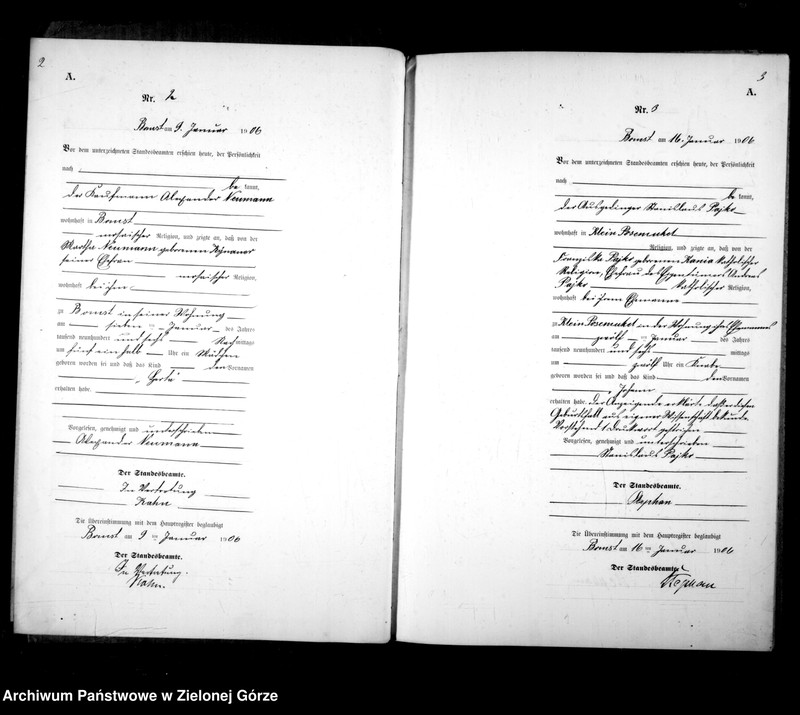 2
A.
Nr. 2
Bomst am 9. Januar 1906
Vor dem unterzeichneten Standesbeamten erschien heute, der Persönlichkeit
nach
be kannt,
der Kaufmann Alexander Neumann
wohnhaft in Bomst
mosaischer Religion, und zeigte an, daß von der
Martha Neumann geborenen
seiner Ehefrau
mosaischer Religion,
wohnhaft bei ihm
zu Bomst in seiner Wohnung
am sieben ten Januar des Jahres
tausend neunhundert und sechs Nachmittags
um fünf ein halb Uhr ein Mädchen
geboren worden sei und daß das Kind den Vornamen
"Herta"
erhalten habe.
Vorgelesen, genehmigt und unterschrieben
Alexander Neumann
Der Standesbeamte.
In Vertretung
Kahn
Die Übereinstimmung mit dem Hauptregister beglaubigt
Bomst am 9 ten Januar 1906
Der Standesbeamte.
In Vertretung.
Kahn.
3
A.
Nr. 3
Bomst am 16. Januar 1906
Vor dem unterzeichneten Standesbeamten erschien heute, der Persönlichkeit
nach
be kannt,
der Ausgedinger Stanislaus Pajko
wohnhaft in Klein Posemukel
Religion, und zeigte an, daß von der
Franziska Pajko geborenen Kania katholischer
Religion, Ehefrau des Eigentümers
Pajko katholischer Religion,
wohnhaft bei ihrem Ehemanne
zu Klein Posemukel in der Wohnung ihres Ehemannes
am zwölf ten Januar des Jahres
tausend neunhundert und sechs mittags
um zwölf Uhr ein Knabe
geboren worden sei und daß das Kind den Vornamen
Johann
erhalten habe. Der Anzeigende erklärte daß er diesen
Geburtsfall aus eigener Wissenschaft bekunde.
Vorstehend 1 Druckwort gestrichen
Vorgelesen, genehmigt und unterschrieben
Stanislaus Pajko
Der Standesbeamte.
Stephan
Die Übereinstimmung mit dem Hauptregister beglaubigt
Bomst am 16 ten Januar 1906
Der Standesbeamte.
Stephan
Archiwum Państwowe w Zielonej Górze